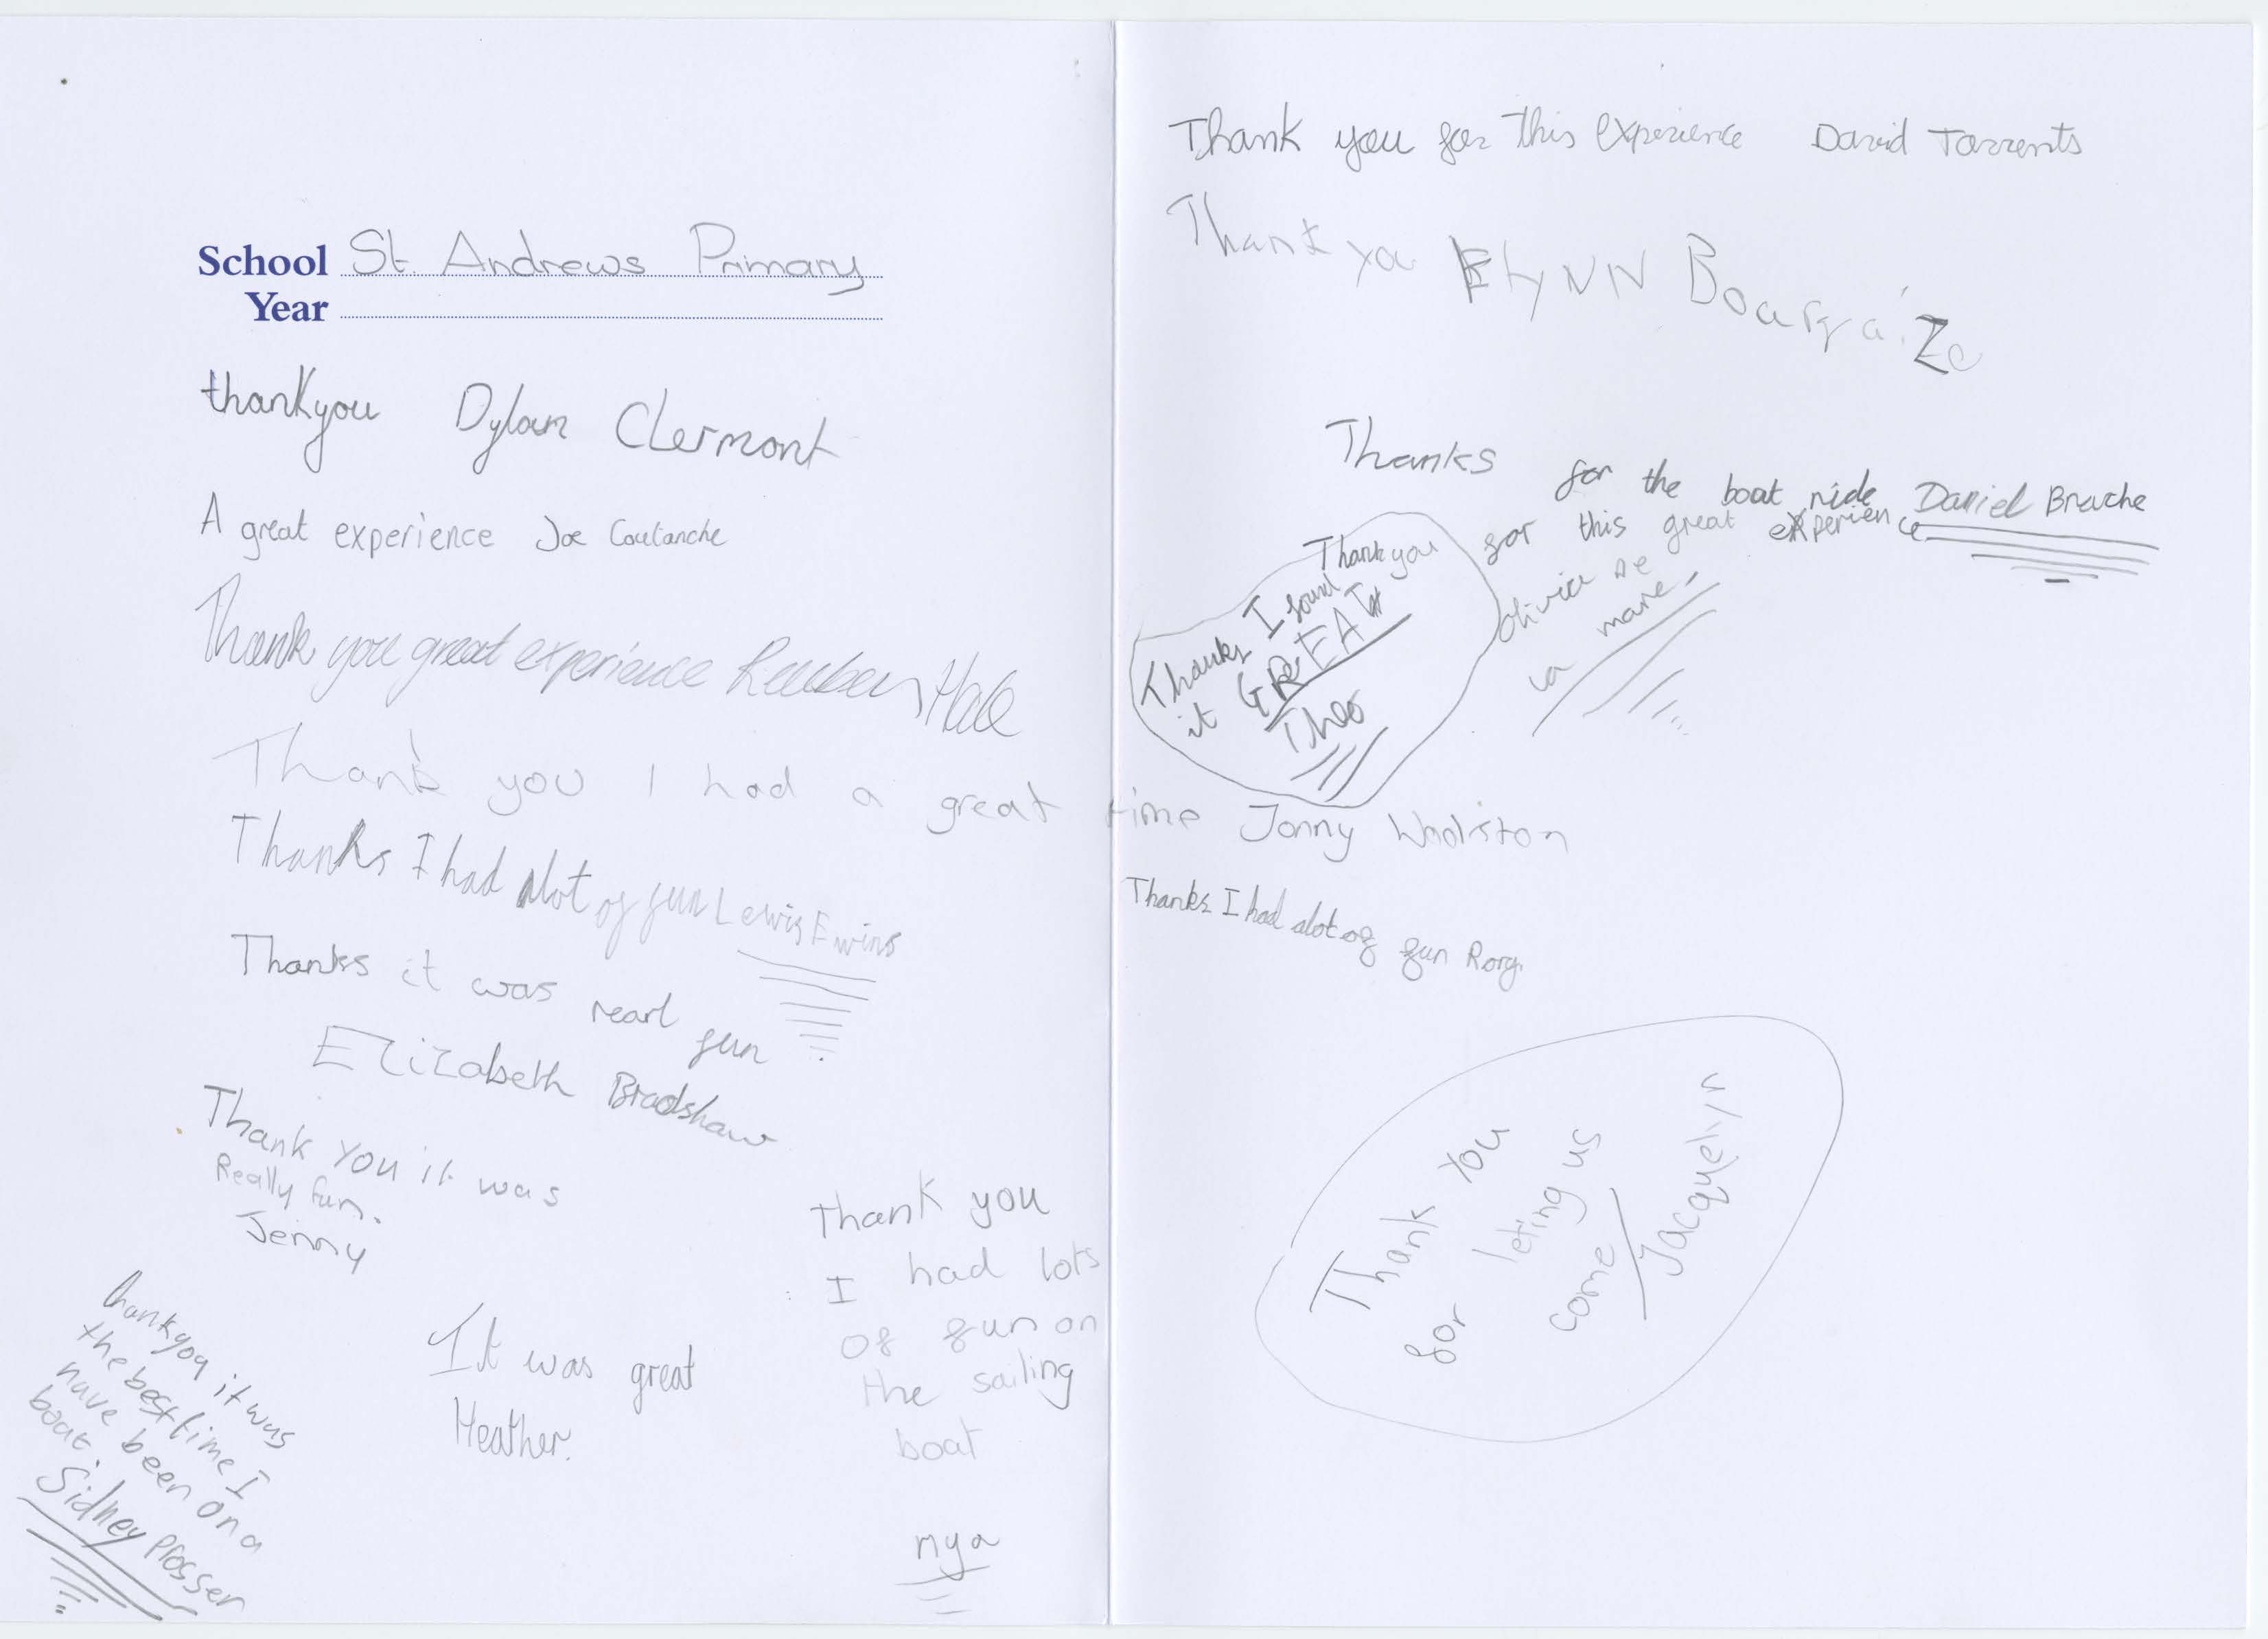 School St. Andrews Primary
Year
thankyou Dylan Clermont
A great experience Joe Coutanche
Thank you great experience Reuben Hale
Thank you I had a great time Jonny Woolston
Thanks I had alot of fun Lewis Ewins
Thanks it was rearl fun
Elizabeth Bradshaw
Thank you it was
Really fun.
Jenny
thankyou it was
the best time I
have been on a
boat.
Sidney Prosser
It was great
Heather.
Thank you
I had lots
of fun on
the sailing
boat
nya
Thank you for this experience David Torrents
Thank you Flynn
Thanks for the boat ride Daniel Breuche
Thank you for this great experience
olivia De
la mare
Thanks I found
it GREAT
Theo
Thanks I had alot of fun Rory.
Thank You
for leting us
come / Jacquelyn